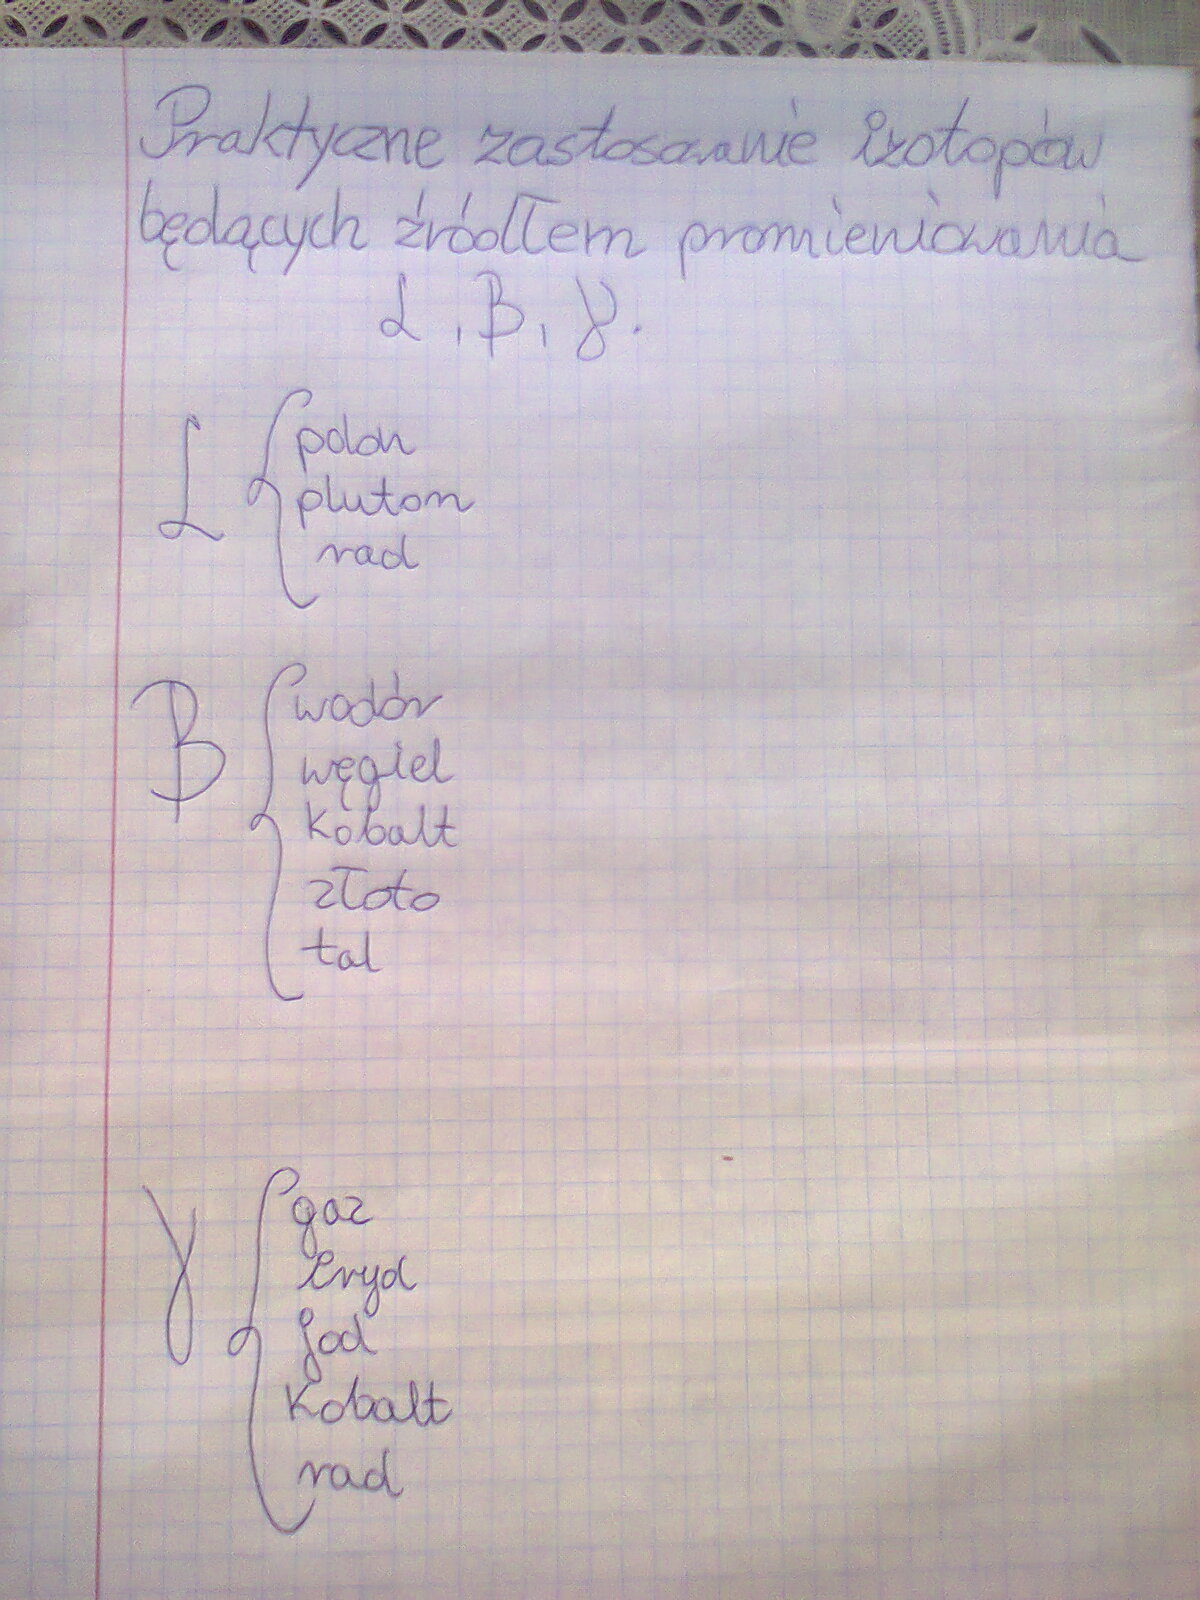 Praktyczne zastosowanie izotopów
będących źródłem promieniowania
α, β, γ.
α
polon
pluton
rad
β
wodór
węgiel
kobalt
złoto
tal
γ
gaz
iryd
jod
kobalt
rad